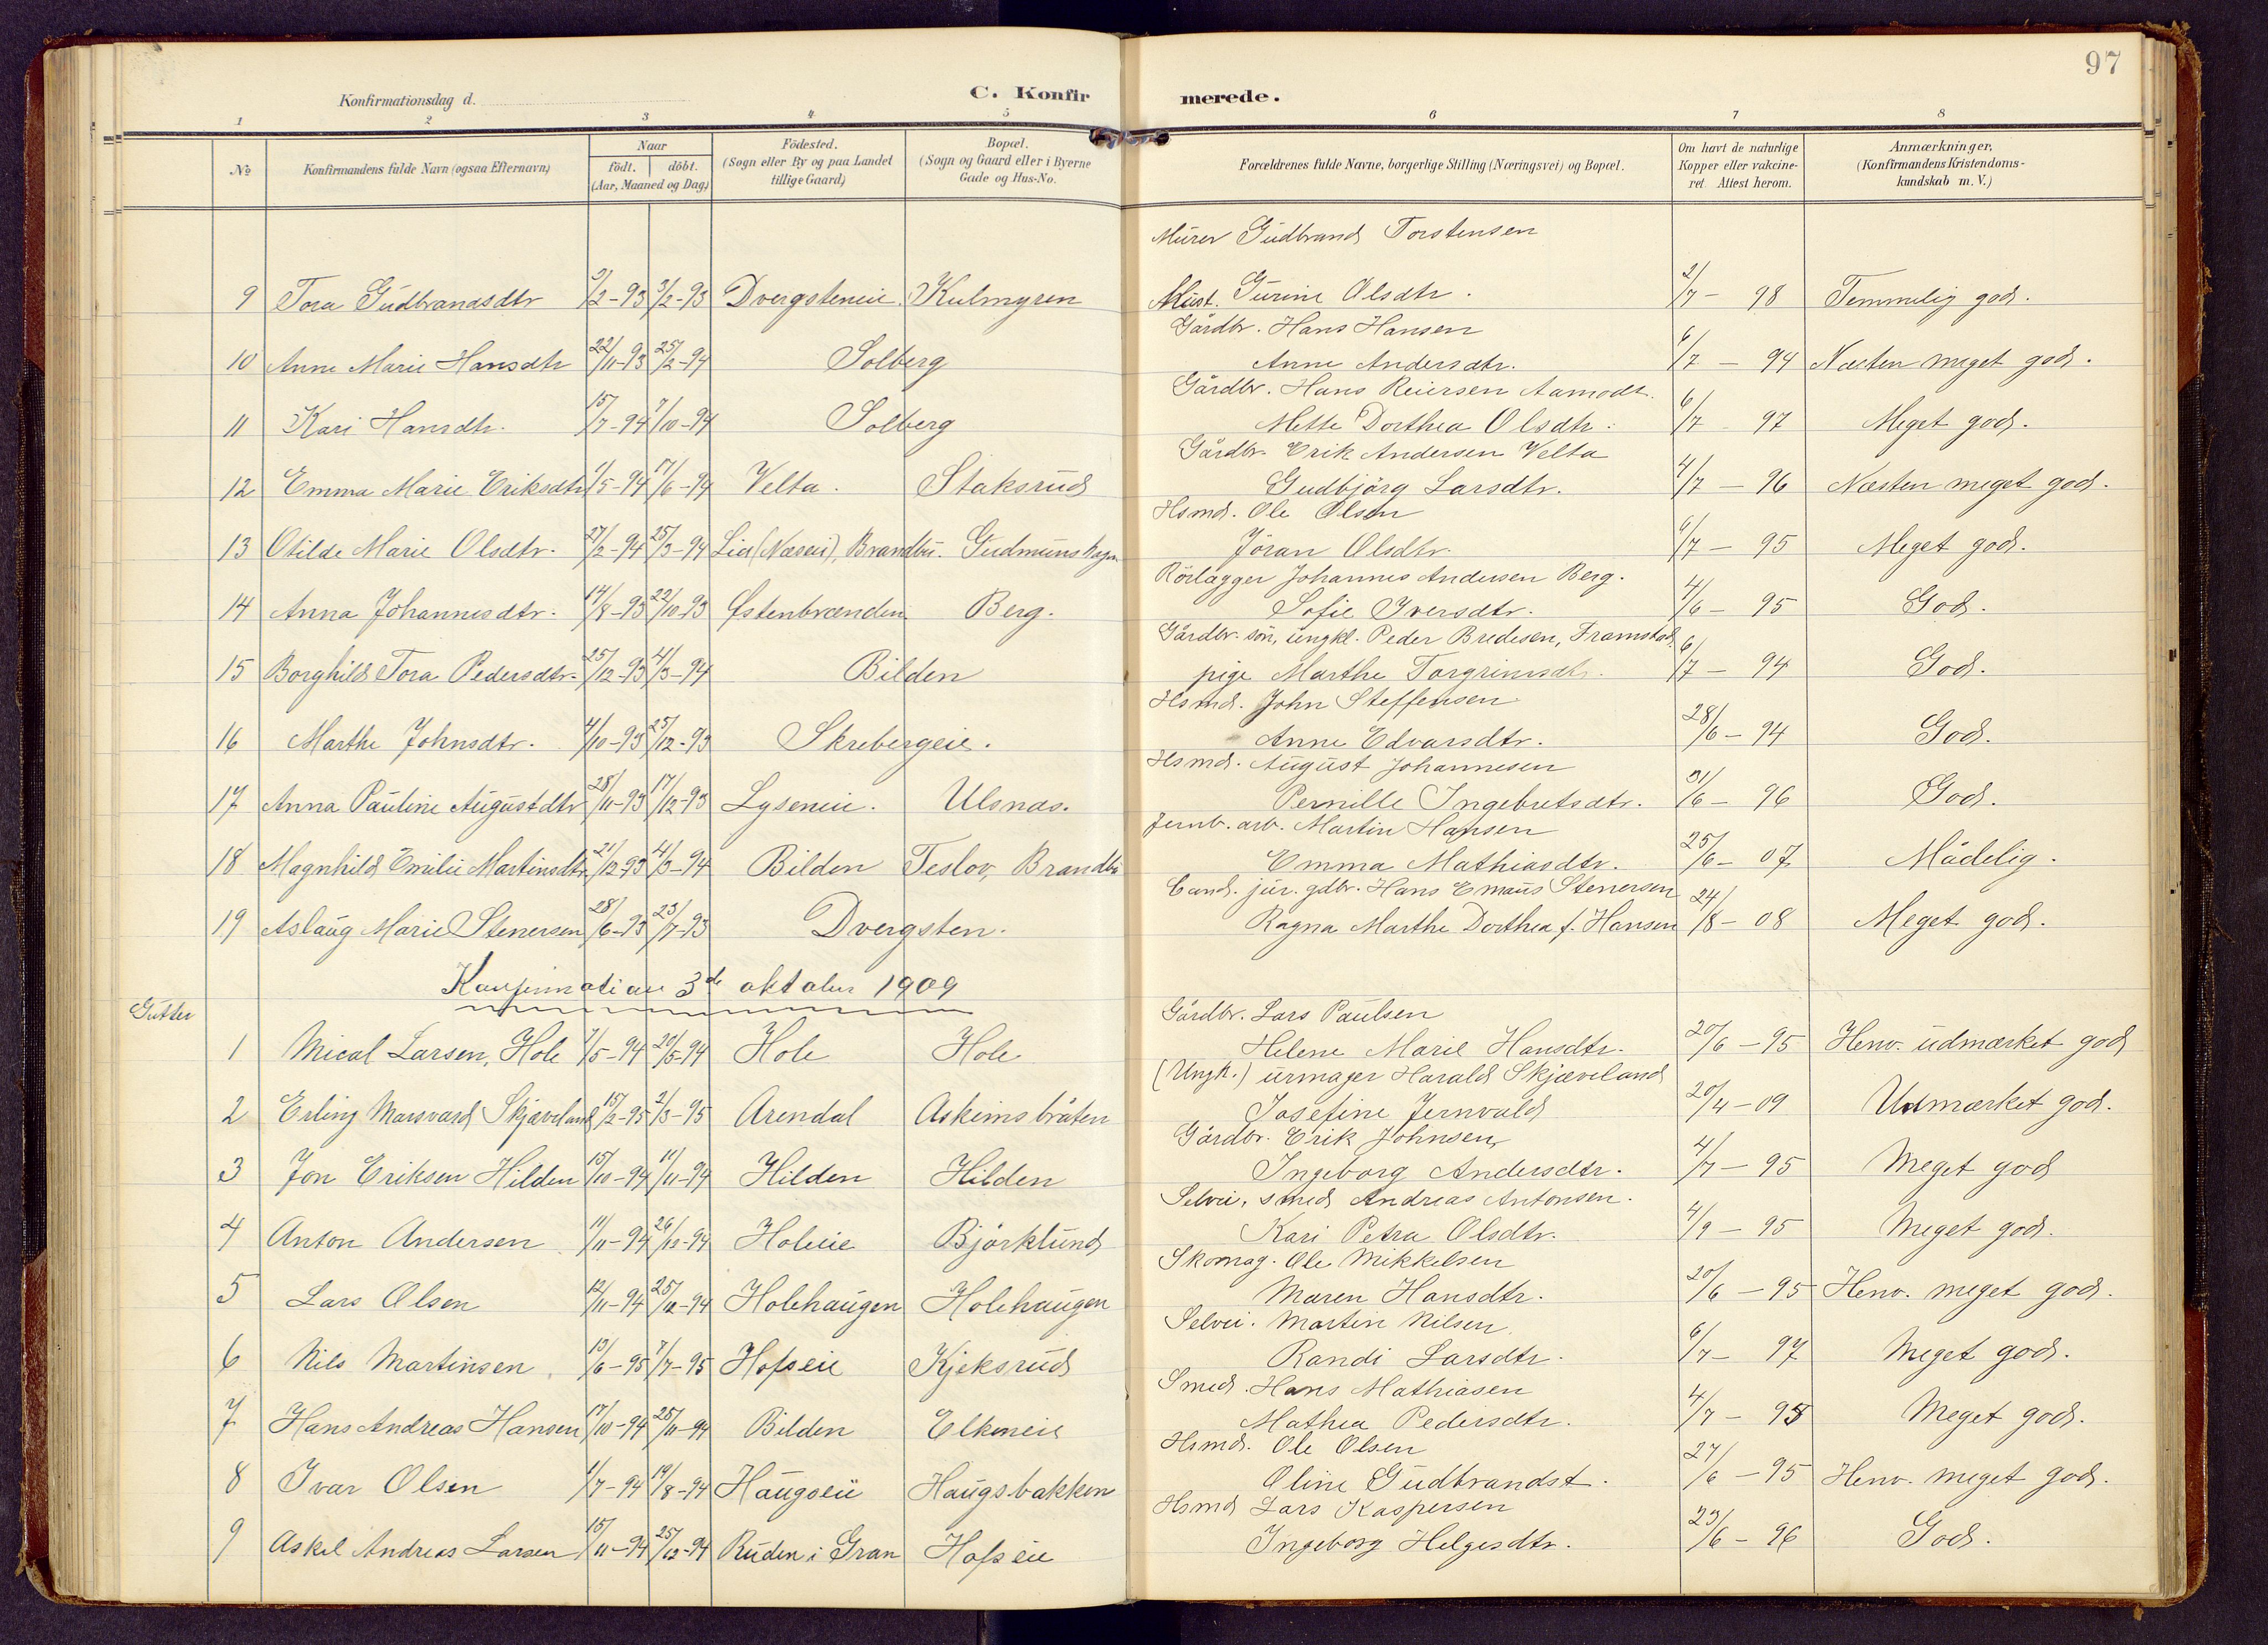 97
Konfirmationsdag d.
C. Konfirmerede.
1 2 3 4 5 6 7 8
No
Konfirmandens fulde Navn (ogsaa Efternavn)
Naar
født. døbt.
(Aar, Maaned og Dag)
Fødested.
(Sogn eller By og paa Landet
tillige Gaard)
Bopæl.
(Sogn og Gaard eller i Byerne
Gade og Hus-No.
Forældrenes fulde Navne, borgerlige Stilling (Næringsvei) og Bopæl.
Om havt de naturlige
Kopper eller vakcine-
ret. Attest herom.
Anmærkninger,
(Konfirmandens Kristendoms-
kundskab m. V.)
Murer Gudbrand Torstensen
9 Tora Gudbrandsdtr /2-93 3/2-93 Dvergsteneie Kulmyren Hust. Gurine Olsdtr. 2/7 - 98 Temmelig god.
Gårdbr. Hans Hansen
10 Anne Marie Hansdtr 22/11-93 25/2-94 Solberg Anne Andersdtr. 6/7 - 94 Næsten meget god.
Gårdbr. Hans Reiersen Aamodt.
11 Kari Hansdtr. 15/7-94 7/10-94 Solberg Mette Dorthea Olsdtr. 6/7 - 97 Meget god.
Gårdbr. Erik Andersen Velta
12 Emma Marie Eriksdtr 1/5-94 17/6-94 Velta. Staksrud Gudbjørg Larsdtr. 4/7 - 96 Næsten meget god.
Hsmd. Ole Olsen
13 Otilde Marie Olsdtr. 27/2-94 25/3-94 Lia (Næseie), Brandbu. Gudmuns Jöran Olsdtr. 6/7 - 95 Meget god.
Rörlægger Johannes Andersen Berg.
14 Anna Johannesdtr. 14/8-93 22/10-93 Østenbrænden Berg. Sofie Iversdtr. 4/6 - 95 God.
Gårdbr. sön, ungkl. Peder Bredesen, Framstad,
15 Borghild Tora Pedersdtr. 25/12-93 4/3-94 Bilden pige Marthe Torgrimsdtr. 6/7 - 94 God.
Hsmd. John Steffensen
16 Marthe Johnsdtr. 4/10-93 25/12-93 Skrebergeie. Anne Edvarsdtr. 28/6 - 94 God.
Hsmd. August Johannesen
17 Anna Pauline Augustdtr 28/11-93 17/12-93 Lyseneie. Ulsnæs. Pernille Ingebretsdtr. /6 - 96 God.
Jernb. arb. Martin Hansen
18 Magnhild Emilie Martinsdtr. 21/12-93 4/3-94 Bilden Teslov, Brandbu Emma Mathiasdtr. 25/6 - 07 Mådelig.
Cand. jur. gdbr. Hans Emaus Stenersen
19 Aslaug Marie Stenersen 28/6-93 23/7-93 Dvergsten. Ragna Marthe Dorthea f. Hansen 24/8 - 08 Meget god.
Konfirmation 3de oktober 1909
Gutter
Gårdbr. Lars Paulsen
1 Mical Larsen, Hole 7/5-94 20/5-94 Hole Hole Helene Marie Hansdtr. 20/6 - 95 Henv. udmærket god
(Ungk.) urmager Harald Skjæveland
2 Erling Marsvard Skjæveland 15/2-95 2/3-95 Arendal Askimsbråten Josefine Jernvald 20/4 - 09 Udmærket god.
Gårdbr. Erik Johnsen,
3 Jon Eriksen Hilden 15/10-94 11/11-94 Hilden Hilden Ingeborg Andersdtr. 4/7 - 95 Meget god
Selvei, smed Andreas Antonsen.
4 Anton Andersen 11/11-94 26/12-94 Holeeie Björklund Kari Petra Olsdtr. 4/9 - 95 Meget god.
Skomag. Ole Mikkelsen
5 Lars Olsen 12/11-94 25/12-94 Holehaugen Holehaugen Maren Hansdtr. 20/6 - 95 Henv. meget god.
Selvei. Martin Nilsen
6 Nils Martinsen. 13/6-95 7/7-95 Hofseie Kjeksrud Randi Larsdtr. 6/7 - 97 Meget god.
Smed. Hans Mathiasen
7 Hans Andreas Hansen 17/10-94 25/11-94 Bilden Elkeneie Mathea Pedersdtr. 4/7 - 95 Meget god.
Hsmd. Ole Olsen
8 Ivar Olsen 1/7-94 19/8-94 Haugseie Haugsbakken Oline Gudbrandst. 27/6 - 95 Henv. meget god.
Hsmd Lars Kaspersen
9 Askel Andreas Larsen 15/11-94 25/12-94 Ruden i Gran Hofseie Ingeborg Helgesdtr. 23/6 - 96 God.